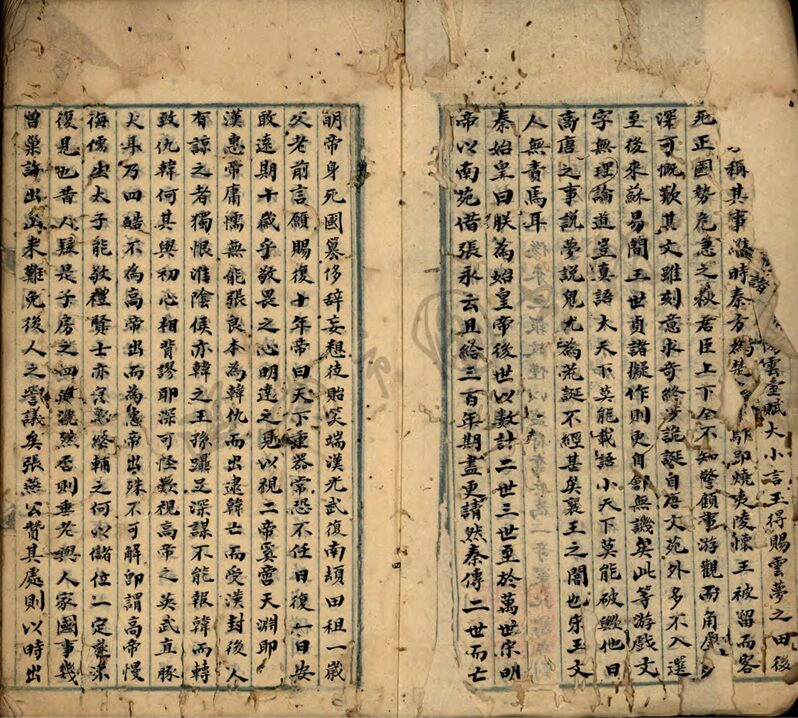 雲臺賦大小言玉得賜雲夢之田後
稱其事時秦方為楚即燒夷陵懷王被留而客
死正國勢危急之秋君臣上下全不知警顧事游觀而角
深可慨歎其文雖刻意求奇終涉詭誕自唐文苑外多不入選
至後來蘇易簡王世貞諸擬作則更自鄶無譏矣此等游戲文
字無理論道豈真語大天下莫能載語小天下莫能破興他日
高唐之事說夢說鬼尤為荒誕不經甚矣襄王之闇也宋玉文
人無責焉耳
秦始皇曰朕為始皇帝後世以數計二世三世至於萬世宋明
帝以南苑借張永云且給三百年期盡更請然秦傳二世而亡
明帝身死國篡侈辭妄想徒貽笑端漢光武復南頓田租一歲
父老前言願賜復十年帝曰天下重器常恐不任日復一日安
敢遠期十歲乎敬畏之心明達之見以視二帝寞啻天淵耶
漢惠帝庸懦無能張良本為韓仇而出逮韓亡而受漢封後人
有諒之者獨恨淮陰侯亦韓之王孫躡足深謀不能報韓而轉
致仇韓何其與初心相背謬耶深可怪歎視高帝之英武直豚
犬耳乃四皓不為高帝出而為惠帝出殊不可解即謂高帝慢
侮儒生太子能敬禮賢士亦何以儲位一定
復見也昔人疑是子房之四否則垂老與人家國事幾
曾巢論出山来難免後人之訾議矣張燕公贊其處則以時出